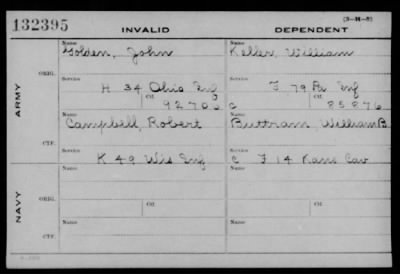 132395 INVALID DEPENDENT (3-H-8)
ARMY
ORIG.
Name Golden, John
Name Keller, William
Service H 34 Ohio Inf
Service I 79 Pa Inf
Ctf. 92703
C Ctf. 85876
CTF.
Name Campbell, Robert
Name Buttram, William B
Service K 49 Wis Inf
Service C I 14 Kans Cav
NAVY
ORIG.
Name
Name
Ctf.
Ctf.
CTF.
Name
Name